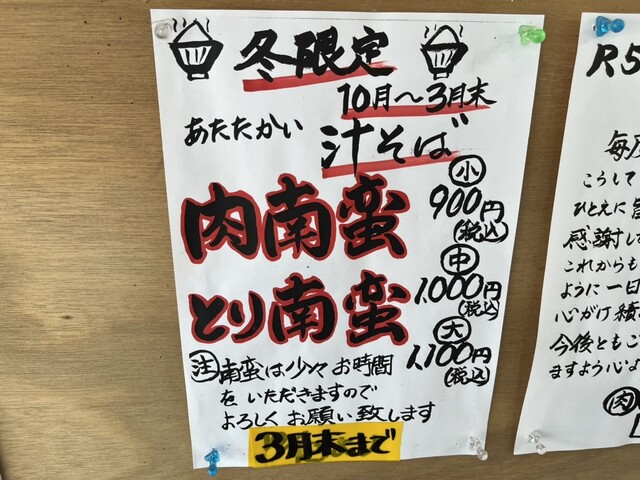 冬限定
10月〜3月末
あたたかい
汁そば
肉南蛮
とり南蛮
小
900円
(税込)
中
1,000円
(税込)
大
1,100円
(税込)
注 南蛮は少々お時間
をいただきますので
よろしくお願い致します
3月末まで
R5
毎度
こうして
ひとえに皆
感謝し
これからも
ように一日
心がけ積
今後ともご
ますよう心よ
肉